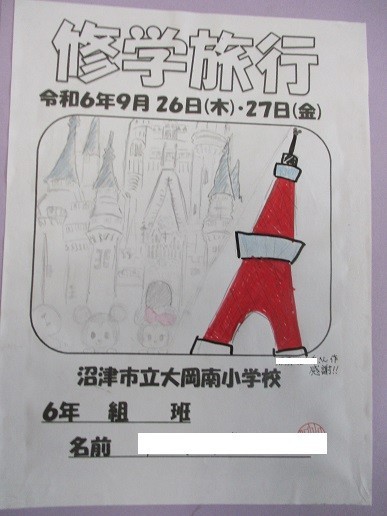 修学旅行
令和6年9月26日(木)・27日(金)
さん作
感謝!!
沼津市立大岡南小学校
6年 組 班
名前